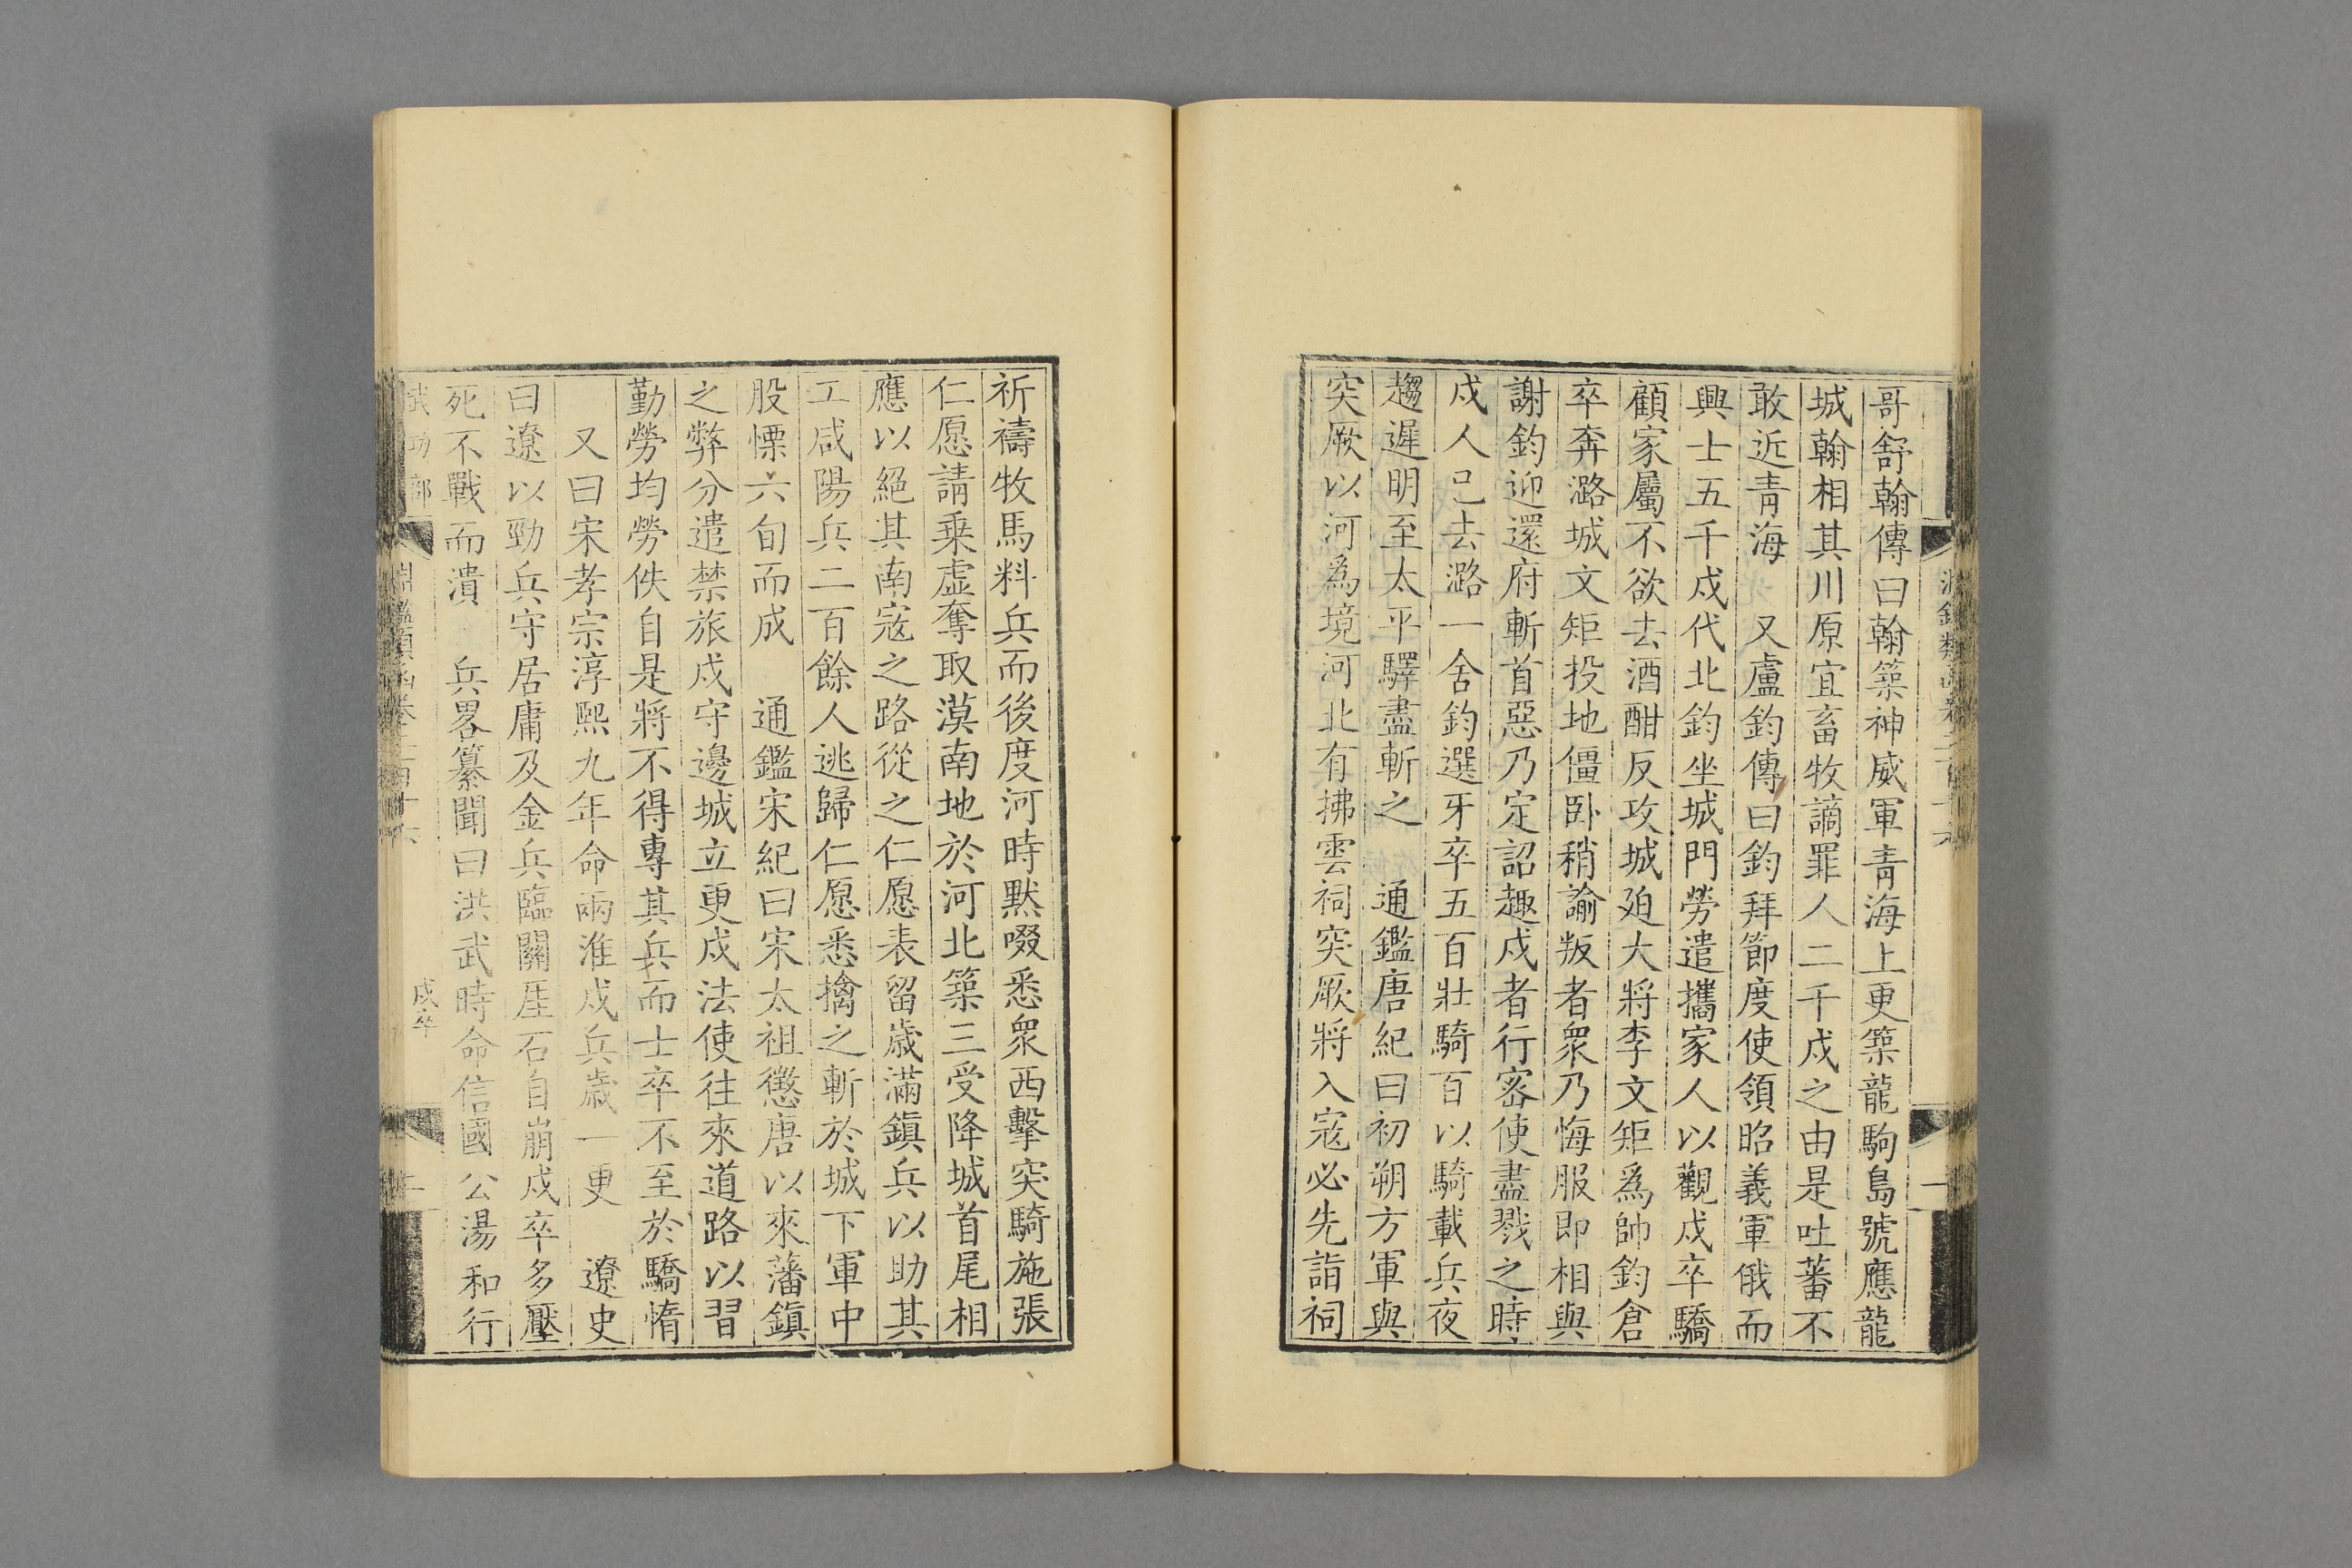 哥舒翰傳曰翰築神威軍青海上更築龍駒島號應龍
城翰相其川原宜畜牧謫罪人二千戍之由是吐蕃不
敢近青海 又盧鈞傳曰鈞拜節度使領昭義軍俄而
興士五千戍代北鈞坐城門勞遣攜家人以觀戍卒驕
顧家屬不欲去酒酣反攻城廹大將李文矩爲帥鈞倉
卒奔潞城文矩投地僵卧稍諭叛者衆乃悔服即相與
謝鈞迎還府斬首惡乃定詔趣戍者行密使盡戮之時
戍人已去潞一舍鈞選牙卒五百壯騎百以騎載兵夜
趨遲明至太平驛盡斬之 通鑑唐紀曰初朔方軍與
突厥以河爲境河北有拂雲祠突厥將入寇必先詣祠
祈禱牧馬料兵而後度河時默啜悉衆西擊突騎施張
仁愿請乗虛奪取漠南地於河北築三受降城首尾相
應以絕其南寇之路從之仁愿表留歲滿鎮兵以助其
工咸陽兵二百餘人逃歸仁愿悉擒之斬於城下軍中
股慄六旬而成 通鑑宋紀曰宋太祖懲唐以來藩鎮
之弊分遣禁旅戍守邊城立更戍法使往來道路以習
勤勞均勞佚自是將不得專其兵而士卒不至於驕惰
又曰宋孝宗淳熙九年命兩淮戍兵歲一更 遼史
曰遼以勁兵守居庸及金兵臨關厓石自崩戍卒多壓
死不戰而潰 兵畧纂聞曰洪武時命信國公湯和行
武功部 淵鑑類函卷二百十六 戍卒 二